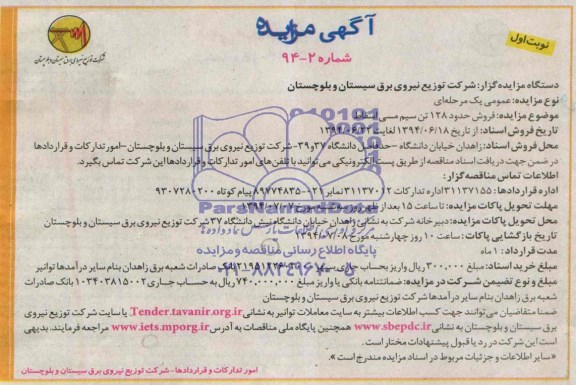 آگهی مزایده
نوبت اول
شماره ۲-۹۴
شرکت توزیع نیروی برق سیستان و بلوچستان
دستگاه مزایده گزار: شرکت توزیع نیروی برق سیستان و بلوچستان
نوع مزایده: عمومی یک مرحله‌ای
موضوع مزایده: فروش حدود ۱۲۸ تن سیم مسی اسقاط
تاریخ فروش اسناد: از تاریخ ۱۳۹۴/۰۶/۱۸ لغایت ۱۳۹۴/۰۶/۲۲
محل فروش اسناد: زاهدان خیابان دانشگاه – حدفاصل دانشگاه ۳۷ و ۳۹- شرکت توزیع نیروی برق سیستان و بلوچستان – امور تدارکات و قراردادها
در ضمن جهت دریافت اسناد مناقصه از طریق پست الکترونیکی می‌توانید با تلفن‌های امور تدارکات و قراردادها این شرکت تماس بگیرد.
اطلاعات تماس مناقصه گزار:
اداره قراردادها: ۳۱۱۳۷۱۵۵ اداره تدارکات ۳۱۱۳۷۰۱۲ نمابر ۰۲۱-۸۹۷۷۴۸۳۵ پیام کوتاه ۹۳۰۷۲۸۰۲۰۰
مهلت تحویل پاکات مزایده: تا ساعت ۱۵ بعد از ظهر روز
محل تحویل پاکات مزایده: دبیرخانه شرکت به نشانی زاهدان خیابان دانشگاه نبش دانشگاه ۳۷ شرکت توزیع نیروی برق سیستان و بلوچستان
تاریخ بازگشایی پاکات: ساعت ۱۰ روز چهارشنبه مورخ ۱۳۹۴/۰۷/۰۸
مدت قرارداد: ۱ ماه
مبلغ خرید اسناد: ۳۰۰,۰۰۰ ریال واریز بحساب جاری بانک صادرات شعبه برق زاهدان بنام سایر درآمدها توانیر
مبلغ و نوع تضمین شرکت در مزایده: ضمانتنامه بانکی یا واریز مبلغ ۷۴۰,۰۰۰,۰۰۰ ریال به حساب جاری ۰۱۰۳۴۰۳۸۱۵۰۰۲ بانک صادرات
شعبه برق زاهدان بنام سایر درآمدها شرکت توزیع نیروی برق سیستان و بلوچستان
ضمنا متقاضیان می‌توانند جهت کسب اطلاعات بیشتر به سایت معاملات توانیر به نشانی Tender.tavanir.org.ir یا سایت شرکت توزیع نیروی
برق سیستان و بلوچستان به نشانی www.sbepdc.ir همچنین پایگاه ملی مناقصات به آدرس www.iets.mporg.ir مراجعه فرمایند. بدیهی
است این شرکت در رد یا قبول پیشنهادات مختار است.
«سایر اطلاعات و جزئیات مربوط در اسناد مزایده مندرج است.»
امور تدارکات و قراردادها - شرکت توزیع نیروی برق سیستان و بلوچستان
ParsNamadData
پایگاه اطلاع رسانی مناقصه و مزایده
۰۲۱-۸۸۳۴۹۶۷۰-۵